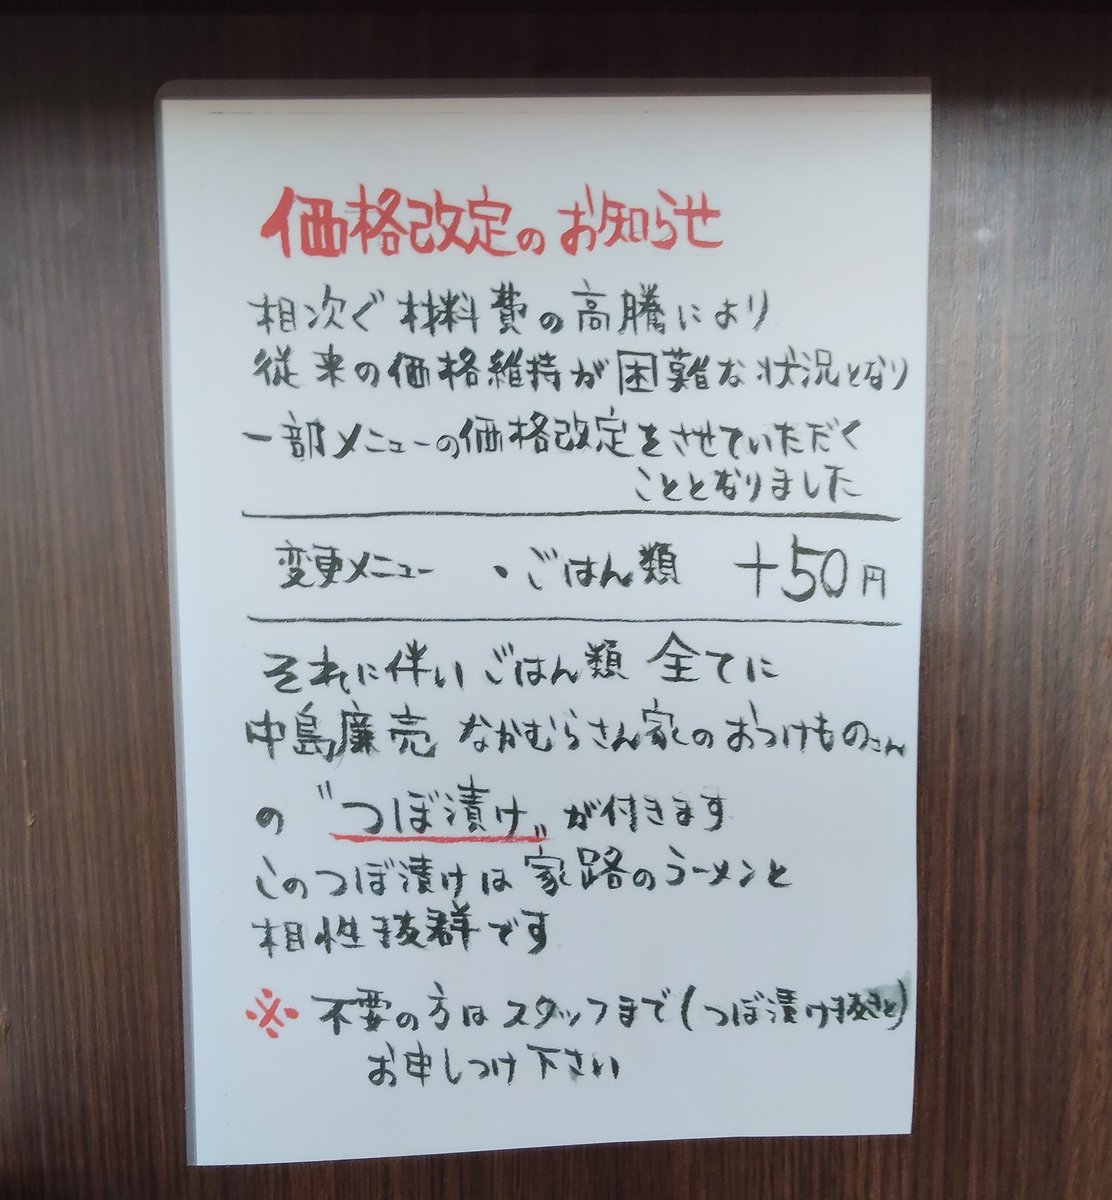 価格改定のお知らせ
相次ぐ材料費の高騰により
従来の価格維持が困難な状況となり
一部メニューの価格改定をさせていただく
こととなりました
変更メニュー ・ごはん類 +50円
それに伴いごはん類 全てに
中島廉売 なかむらさん家のおつけものさん
の〝つぼ漬け〟が付きます
このつぼ漬けは家路のラーメンと
相性抜群です
※ 不要の方はスタッフまで(つぼ漬け抜きと)
お申しつけ下さい